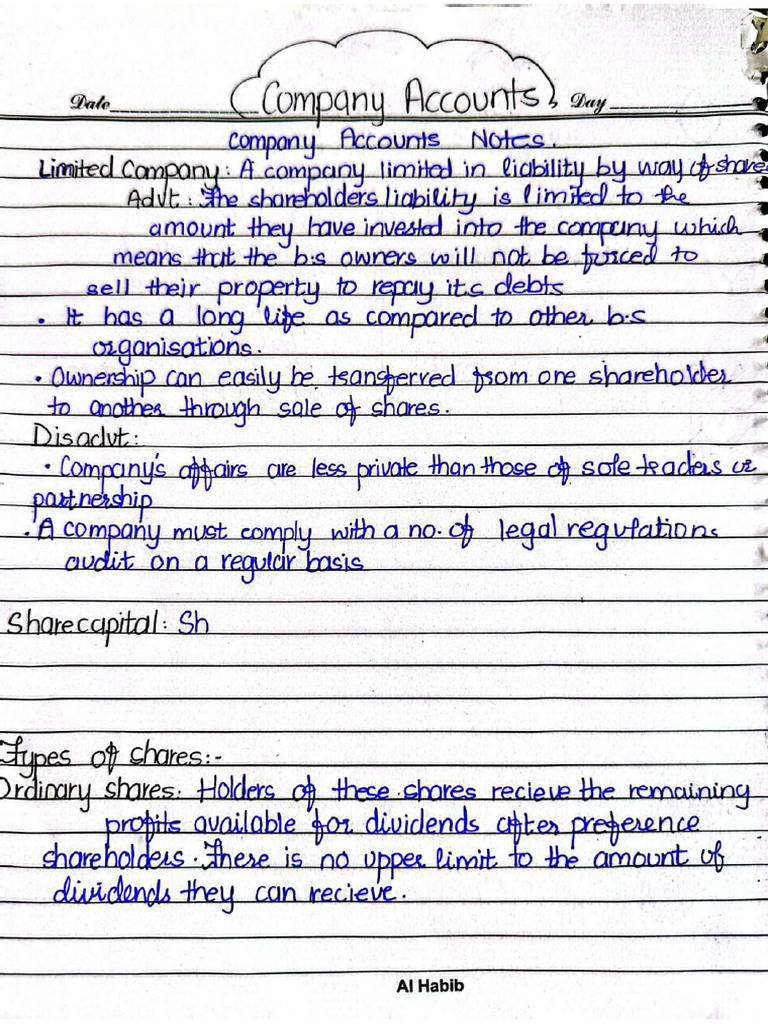 Company Accounts
Date Day
Company Accounts Notes.
Limited Company: A company limited in liability by way of share
Advt: The shareholders liability is limited to the
amount they have invested into the company which
means that the b.s owners will not be forced to
sell their property to repay its debts
• It has a long life as compared to other b.s
organisations.
• Ownership can easily be transferred from one shareholder
to another through sale of shares.
Disadvt:
• Company's affairs are less private than those of sole traders or
partnership
• A company must comply with a no. of legal regulations
audit on a regular basis
Share capital: Sh
Types of shares:-
Ordinary shares: Holders of these shares recieve the remaining
profits available for dividends after preference
shareholders. There is no upper limit to the amount of
dividends they can recieve.
Al Habib